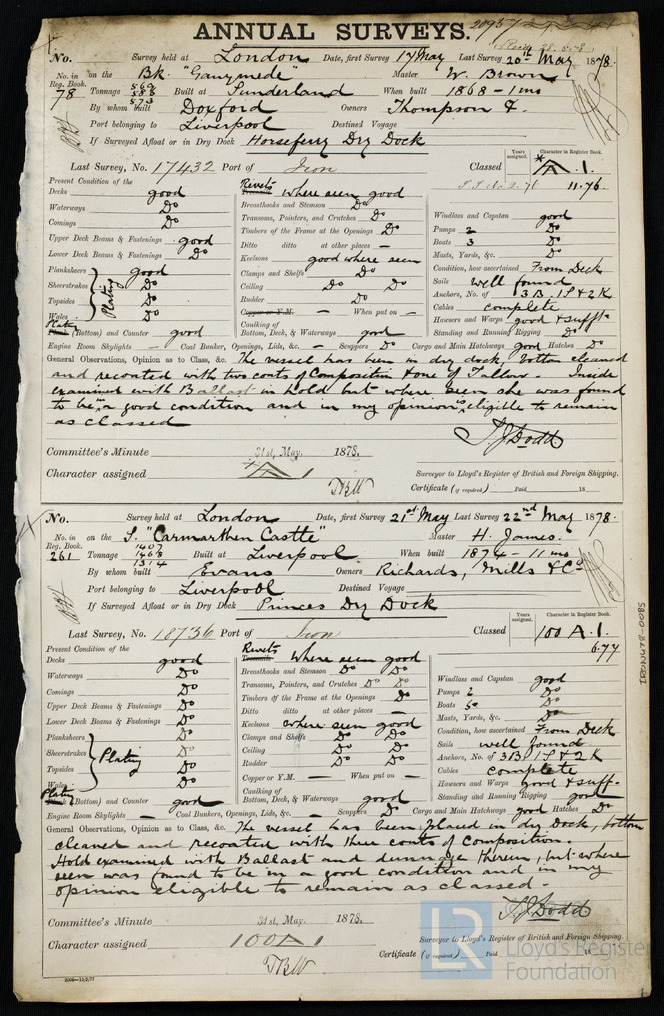 ANNUAL SURVEYS. 20957
No. Survey held at London Date, first Survey 17 May Last Survey 20th May 1878.
No. in on the Bk. "Ganymede" Master W. Brown
Reg. Book. 569
78 Tonnage 588 Built at Sunderland When built 1868 - 1 mo
573
By whom built Doxford Owners Thompson &.
Port belonging to Liverpool Destined Voyage
If Surveyed Afloat or in Dry Dock Horseferry Dry Dock
Last Survey, No. 17432 Port of Iron Classed Years assigned. Character in Register Book. A.1.
11.76.
Present Condition of the Rivets where seen good
Decks good Breasthooks and Stemson Do Windlass and Capstan good
Waterways Do Transoms, Pointers, and Crutches Do Pumps 2 Do
Comings Do Timbers of the Frame at the Openings Do Boats 3 Do
Upper Deck Beams & Fastenings good Ditto ditto at other places — Masts, Yards, &c. Do
Lower Deck Beams & Fastenings Do Keelsons good where seen Condition, how ascertained From Deck
Planksheers good Clamps and Shelfs Do Sails well found
Sheerstrakes Do Ceiling Do Do Anchors, No. of 3B. 1S & 2K
Topsides Plating Do Rudder Do Cables complete
Wales Do Copper or Y.M. — When put on — Hawsers and Warps good & sufft.
Plate (Bottom) and Counter good Caulking of Bottom, Deck, & Waterways good Standing and Running Rigging Do
Engine Room Skylights — Coal Bunker, Openings, Lids, &c. — Scuppers Do Cargo and Main Hatchways good Hatches Do
General Observations, Opinion as to Class, &c. The vessel has been in dry dock, botton cleaned
and recoated with two coats of Composition & one of Tallow. – Inside
examined with Ballast in hold but where seen she was found
to be in a good condition and in my opinion is eligible to remain
as classed
T. J. Dodd
Committee's Minute 31st, May. 1878.
Character assigned A 1 Surveyor to Lloyd's Register of British and Foreign Shipping.
TBW Certificate (if required) Paid 18
No. Survey held at London Date, first Survey 21st May Last Survey 22nd May 1878.
No. in on the S. "Carmarthen Castle" Master H. James.
Reg. Book. 1407
261 Tonnage 1468 Built at Liverpool When built 1874 - 11 mo
1314
By whom built Evans Owners Richards, Mills & Co
Port belonging to Liverpool Destined Voyage
If Surveyed Afloat or in Dry Dock Princes Dry Dock
Last Survey, No. 18736 Port of Iron Classed Years assigned. Character in Register Book. 100 A.1.
6.77
Present Condition of the Rivets where seen good
Decks good Breasthooks and Stemson Do Do Windlass and Capstan good
Waterways Do Transoms, Pointers, and Crutches Do Do Pumps 2 Do
Comings Do Timbers of the Frame at the Openings Do Boats 5 Do
Upper Deck Beams & Fastenings Do Ditto ditto at other places — Masts, Yards, &c. Do
Lower Deck Beams & Fastenings Do Keelsons where seen good Condition, how ascertained From Deck
Planksheers Do Clamps and Shelfs Do Do Sails well found
Sheerstrakes Plating Do Ceiling Do Do Anchors, No. of 3B 1S & 2K
Topsides Do Rudder Do Do Cables complete
Wales Do Copper or Y.M. — When put on — Hawsers and Warps good & suff.
Plating (Bottom) and Counter good Caulking of Bottom, Deck, & Waterways good Standing and Running Rigging good
Engine Room Skylights — Coal Bunkers, Openings, Lids, &c. — Scuppers Do Cargo and Main Hatchways good Hatches Do
General Observations, Opinion as to Class, &c. The vessel has been placed in dry Dock, bottom
cleaned and recoated with three coats of Composition.
Hold examined with Ballast and dunnage therein, but where
seen was found to be in a good condition and in my
opinion eligible to remain as classed. -
T. J. Dodd
Committee's Minute 31st, May. 1878.
Character assigned 100A1 Surveyor to Lloyd's Register of British and Foreign Shipping.
TBW Certificate (if required) Paid 18
2000—11/2/77
LR Lloyd's Register Foundation